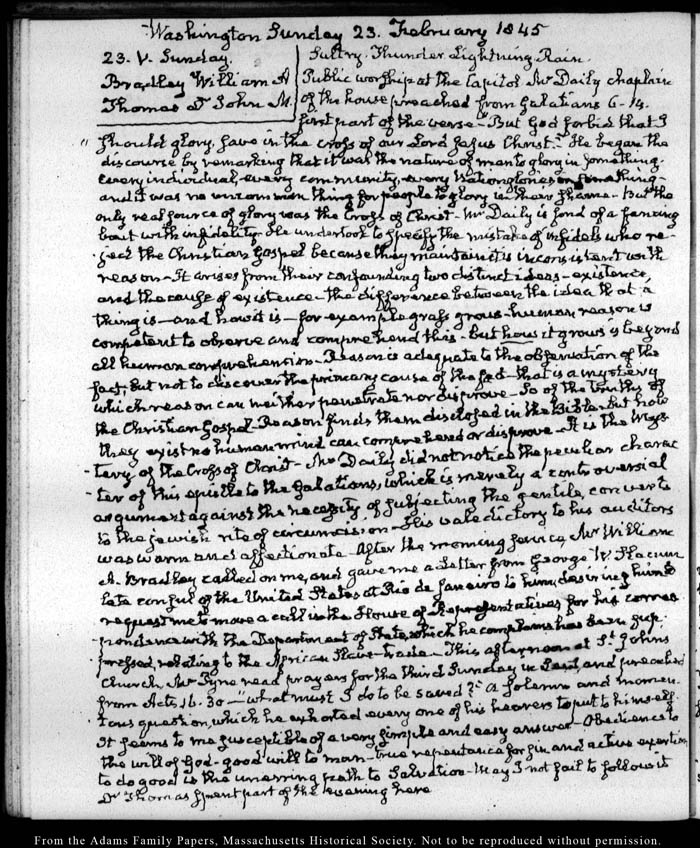 Washington Sunday 23. February 1845
23. V. Sunday.
Bradley William A
Thomas Dr John M.
Sultry. Thunder Lightning Rain.
Public worship at the Capitol Mr Daily chaplain
of the house preached from Galatians 6-14.
first part of the verse - "But God forbid that I
" should glory, save in the cross of our Lord Jesus Christ." He began the
discourse by remarking that it was the nature of man to glory in something.
every individual, every community, every Nation glories in something -
and it was no uncommon thing for people to glory in their shame - But the
only real source of glory was the Cross of Christ - Mr Daily is fond of a fencing
bout with infidelity. He undertook to specify the mistake of infidels who re-
-ject the Christian Gospel because they maintain it is inconsistent with
reason - It arises from their confounding two distinct ideas - existence,
and the cause of existence - the difference between the idea that a
thing is - and how it is - for example grass grows - human reason is
competent to observe and comprehend this - but how it grows is beyond
all human comprehension - Reason is adequate to the observation of the
fact, but not to discover the primary cause of the fact - that is a mystery
which reason can neither penetrate nor disprove - So of the truths of
the Christian Gospel - Reason finds them disclosed in the Bible but how
they exist no human mind can comprehend or disprove - It is the Mys-
-tery of the Cross of Christ - Mr Daily did not notice the peculiar charac
-ter of this epistle to the Galatians, which is merely a controversial
argument against the necessity of subjecting the gentile, converts
to the Jewish rite of circumcision - His valedictory to his auditors
was warm and affectionate. After the morning service, Mr William
A. Bradley called on me, and gave me a Letter from George W. Slacum
late consul of the United States at Rio de Janeiro to him, desiring him to
request me to move a call in the House of Representatives for his corres
pondence with the Department of State, which he complains has been sup-
-pressed, relating to the African Slave-trade - This afternoon at St. Johns
church, Mr Pyne read prayers for the third Sunday in Lent and preached
from Acts, 16. 30 - "what must I do to be saved?" A solemn and momen-
-tous question, which he exhorted every one of his hearers to put to himself.
It seems to me susceptible of a very simple and easy answer - Obedience to
the will of God - good will to man - true repentance for sin and active exertion
to do good is the unerring path to Salvation - May I not fail to follow it
Dr Thomas spent part of the evening here
From the Adams Family Papers, Massachusetts Historical Society. Not to be reproduced without permission.